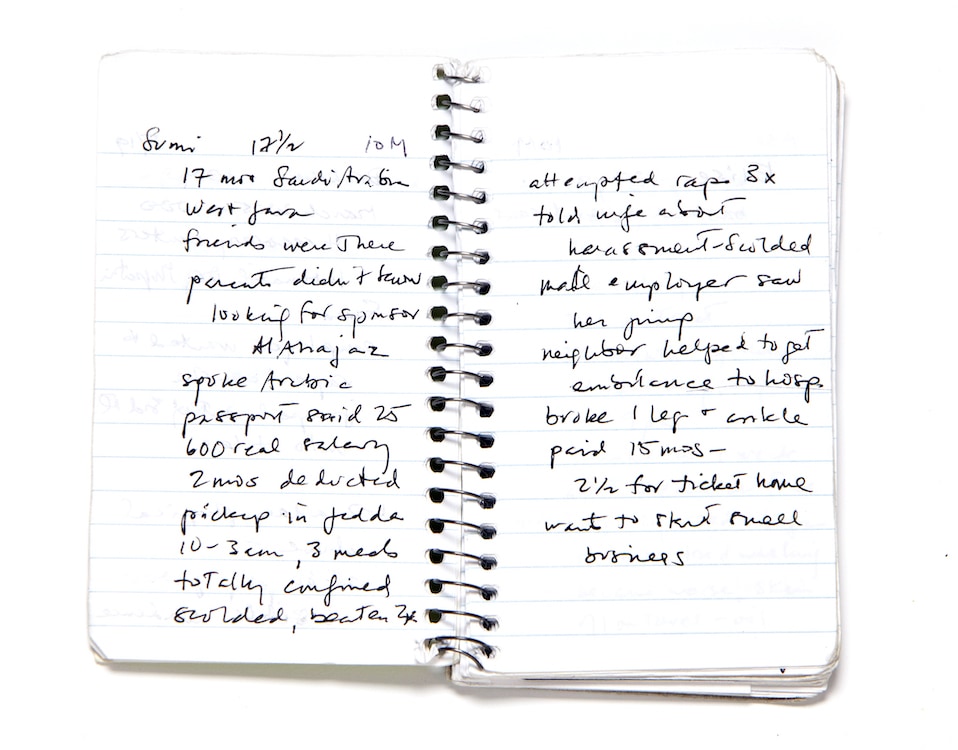 Sumi 17½ IOM
17 mos Saudi Arabia
West Java
friends were there
parents didn't know
looking for sponsor
spoke Arabic
passport said 25
600 real salary
2 mos deducted
pickup in Jedda
10-3 am, 3 meals
totally confined
scolded, beaten 2x
attempted rape 3x
told wife about
harassment-scolded
male employer saw
her jump
neighbor helped to get
ambulance to hosp.
broke 1 leg + ankle
paid 15 mos-
2½ for ticket home
want to start small
business